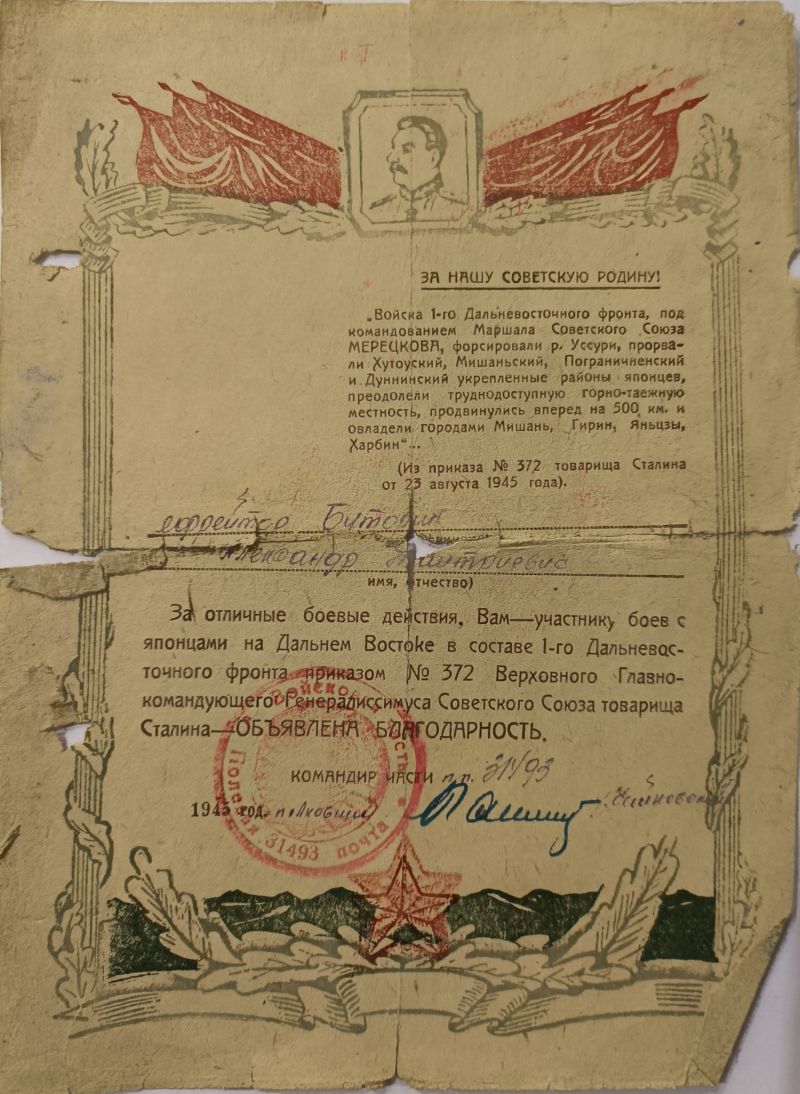 ЗА НАШУ СОВЕТСКУЮ РОДИНУ!
„Войска 1-го Дальневосточного фронта, под
командованием Маршала Советского Союза
МЕРЕЦКОВА, форсировали р. Уссури, прорва-
ли Хутоуский, Мишаньский, Пограничненский
и Дуннинский укрепленные районы японцев,
преодолели труднодоступную горно-таежную
местность, продвинулись вперед на 500 км. и
овладели городами Мишань, Гирин, Яньцзы,
Харбин“...
(Из приказа № 372 товарища Сталина
от 23 августа 1945 года).
ефрейтор
Александр Дмитриевич
имя, отчество)
За отличные боевые действия, Вам—участнику боев с
японцами на Дальнем Востоке в составе 1-го Дальневос-
точного фронта приказом № 372 Верховного Главно-
командующего Генералиссимуса Советского Союза товарища
Сталина—ОБЪЯВЛЕНА БЛАГОДАРНОСТЬ.
КОМАНДИР ЧАСТИ п.п. 31493
1945 год. полковник
Полевая почта 31493